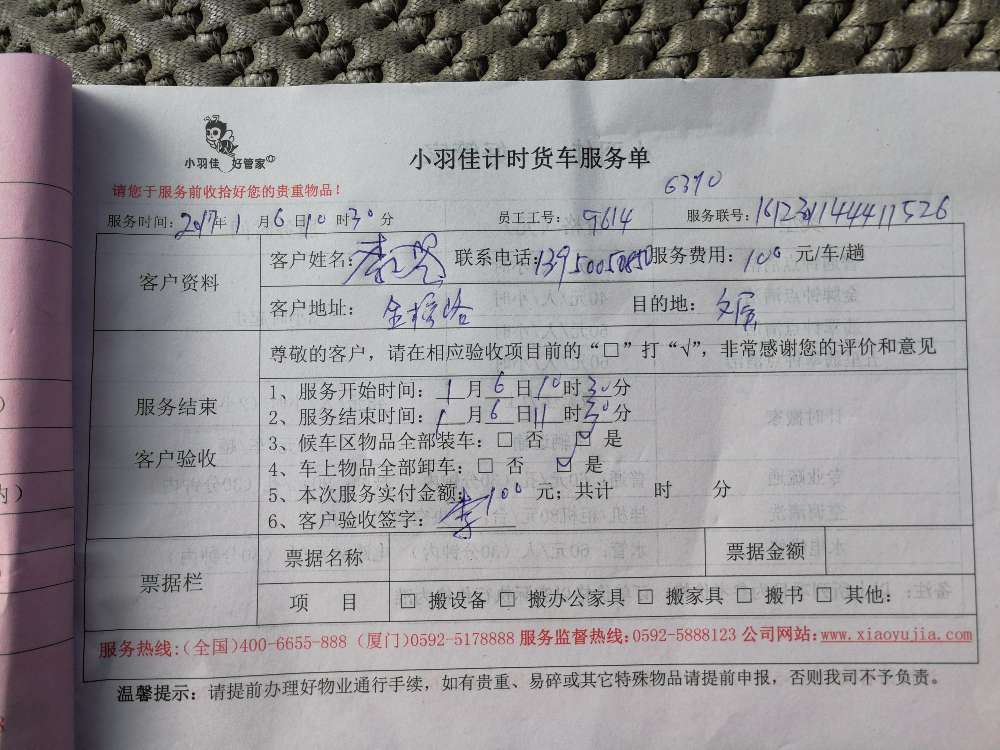 小羽佳 好管家
小羽佳计时货车服务单
请您于服务前收拾好您的贵重物品！
6370
服务时间：2017年1月6日10时30分 员工工号：9614 服务联号：
客户资料
客户姓名： 联系电话： 服务费用：100元/车/趟
客户地址： 目的地：
服务结束
客户验收
尊敬的客户，请在相应验收项目前的“□”打“√”，非常感谢您的评价和意见
1、服务开始时间：1月6日10时30分
2、服务结束时间：1月6日11时30分
3、候车区物品全部装车：□ 否 ☑ 是
4、车上物品全部卸车：□ 否 ☑ 是
5、本次服务实付金额：100元；共计 时 分
6、客户验收签字：李
票据栏
票据名称 票据金额
项 目 □ 搬设备 □ 搬办公家具 □ 搬家具 □ 搬书 □ 其他：
服务热线：(全国)400-6655-888 (厦门)0592-5178888 服务监督热线：0592-5888123 公司网站：www.xiaoyujia.com
温馨提示：请提前办理好物业通行手续，如有贵重、易碎或其它特殊物品请提前申报，否则我司不予负责。